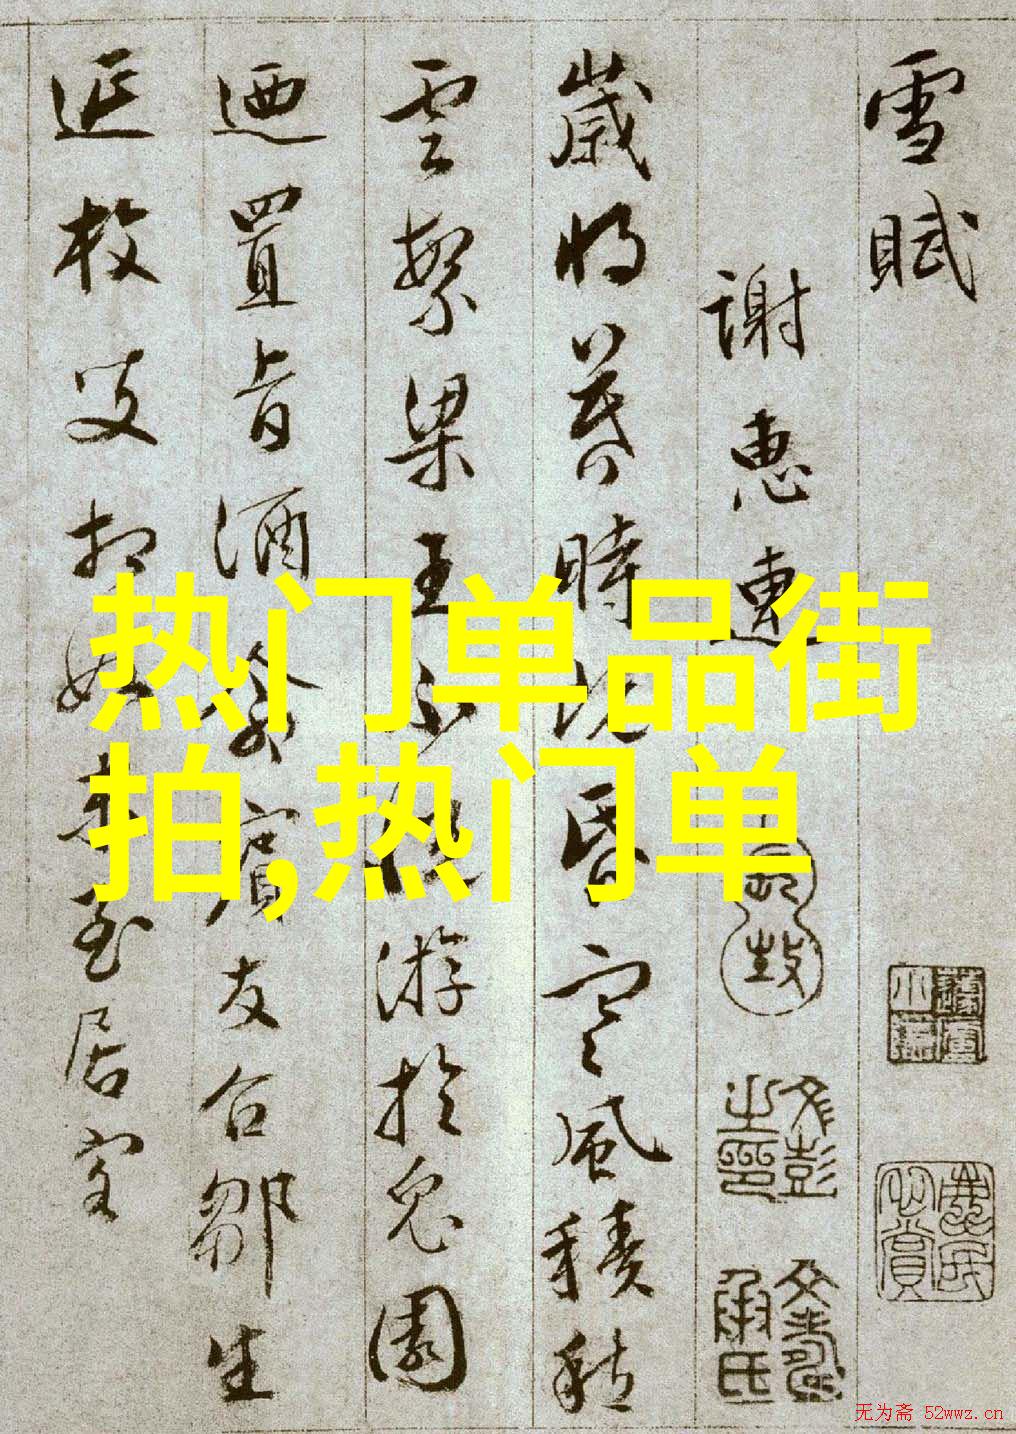 雪賦
謝惠連
歲將暮時既昏寒風積愁
雲繁梁王不悅游於兔園
迺置旨酒命賓友召鄒生
延枚叟相如末至居客
文彭之印
文壽承氏
热门单品街
拍,热门单
无为斋 52wwz.cn